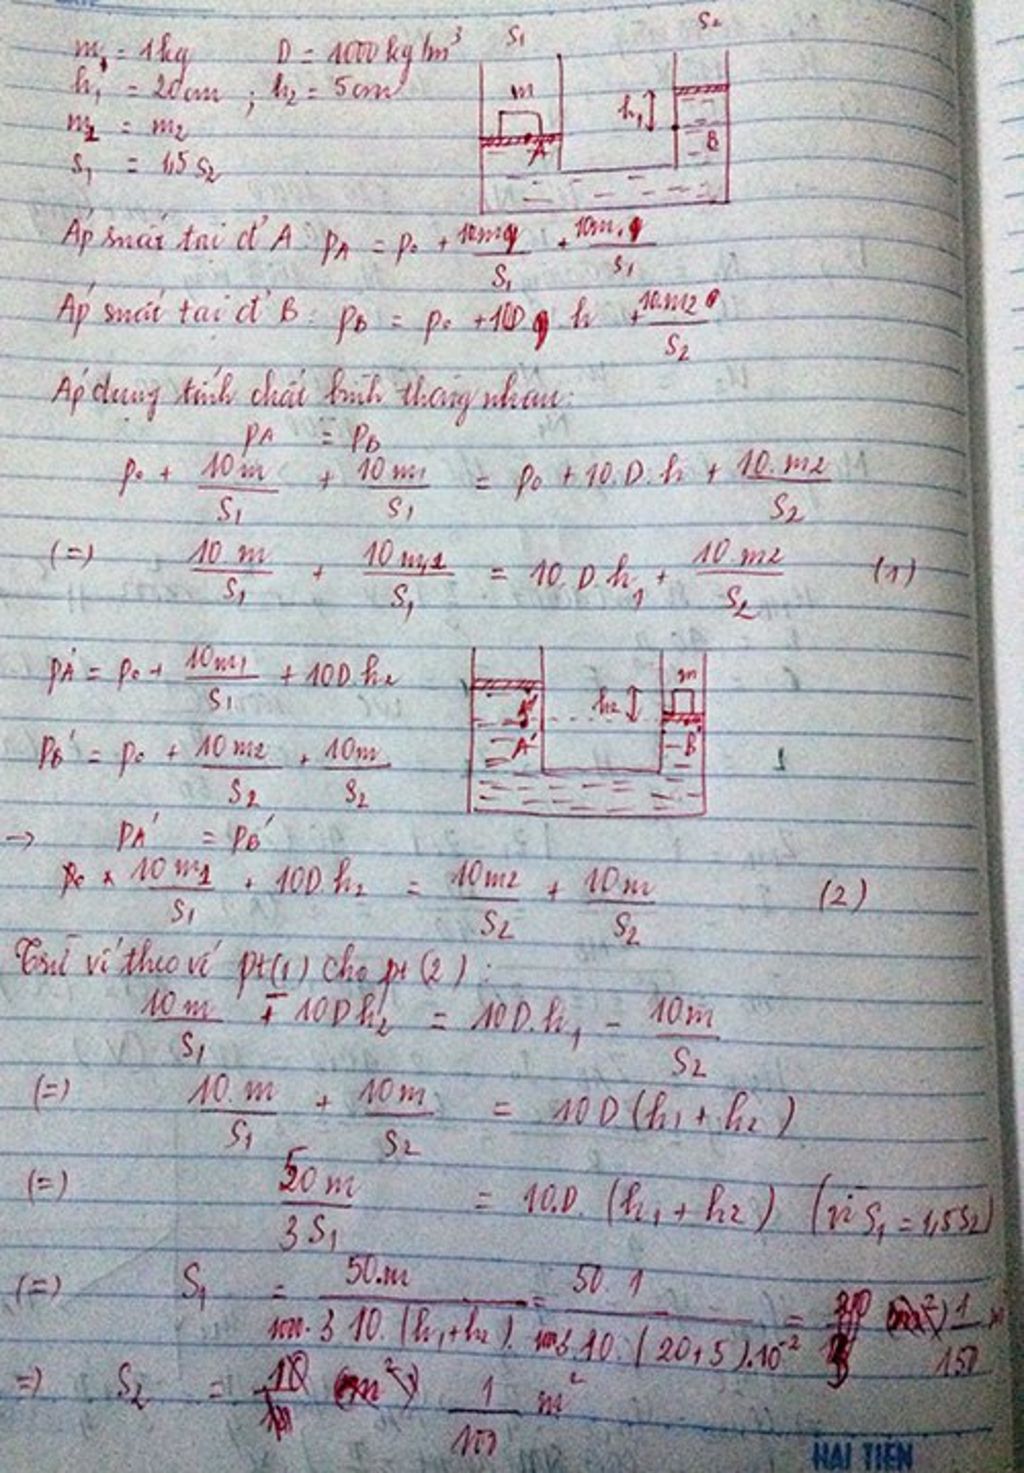 m = 1kg D = 1000kg/m³
h₁ = 20cm ; h₂ = 5cm
m₁ = m₂
S₁ = 1,5 S₂
S₁ S₂
m h₁
A B
Áp suất tại đ' A: pA = p₀ + 10m/S₁ + 10m₁/S₁
Áp suất tại đ' B: pB = p₀ + 10D h + 10.m₂/S₂
Áp dụng tính chất bình thông nhau:
pA = pB
p₀ + 10m/S₁ + 10m₁/S₁ = p₀ + 10.D.h + 10.m₂/S₂
(=) 10.m/S₁ + 10m₁/S₁ = 10.D.h₁ + 10.m₂/S₂ (1)
pA' = p₀ + 10m₁/S₁ + 10D.h₂
h₂ m
A' B'
pB' = p₀ + 10m₂/S₂ + 10m/S₂
→ pA' = pB'
10m₁/S₁ + 10D.h₂ = 10m₂/S₂ + 10m/S₂ (2)
Trừ vế theo vế pt(1) cho pt(2):
10m/S₁ - 10Dh₂ = 10D.h₁ - 10m/S₂
(=) 10.m/S₁ + 10m/S₂ = 10D(h₁ + h₂)
(=) 50m/3S₁ = 10.D.(h₁ + h₂) (vì S₁ = 1,5S₂)
(=) S₁ = 50.m/1000.3.10.(h₁+h₂) = 50.1/1000.3.10.(20+5).10⁻² = 1/150
=) S₂ = m²
HẢI TIẾN